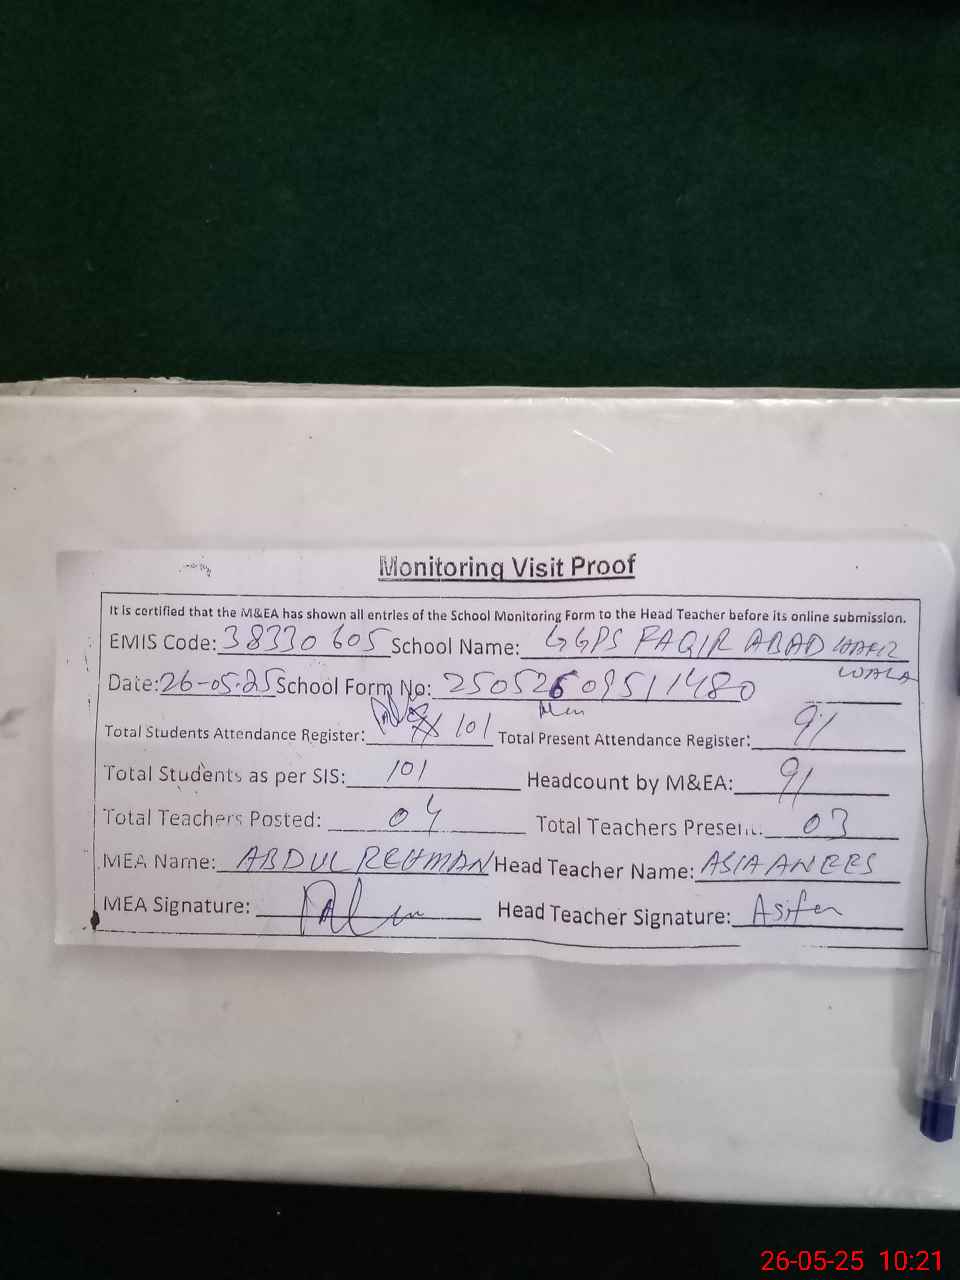 Monitoring Visit Proof
It is certified that the M&EA has shown all entries of the School Monitoring Form to the Head Teacher before its online submission.
EMIS Code: 38330605 School Name: GGPS FAQIR ABAD HAFIZ WALA
Date: 26-05-25 School Form No: 25052609511480
Total Students Attendance Register: 101 Total Present Attendance Register: 91
Total Students as per SIS: 101 Headcount by M&EA: 91
Total Teachers Posted: 04 Total Teachers Present: 03
MEA Name: ABDUL REHMAN Head Teacher Name: ASIA ANEES
MEA Signature: Head Teacher Signature:
26-05-25 10:21